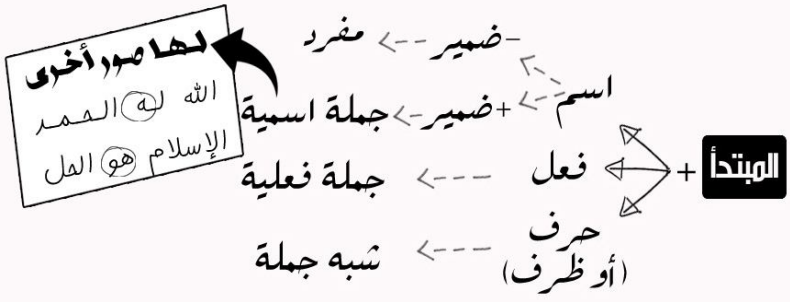 المبتدأ +
اسم
-ضمير مفرد
+ضمير جملة اسمية
فعل جملة فعلية
حرف
(أو ظرف) شبه جملة
لها صور أخرى
الله له الحمد
الإسلام هو الحل